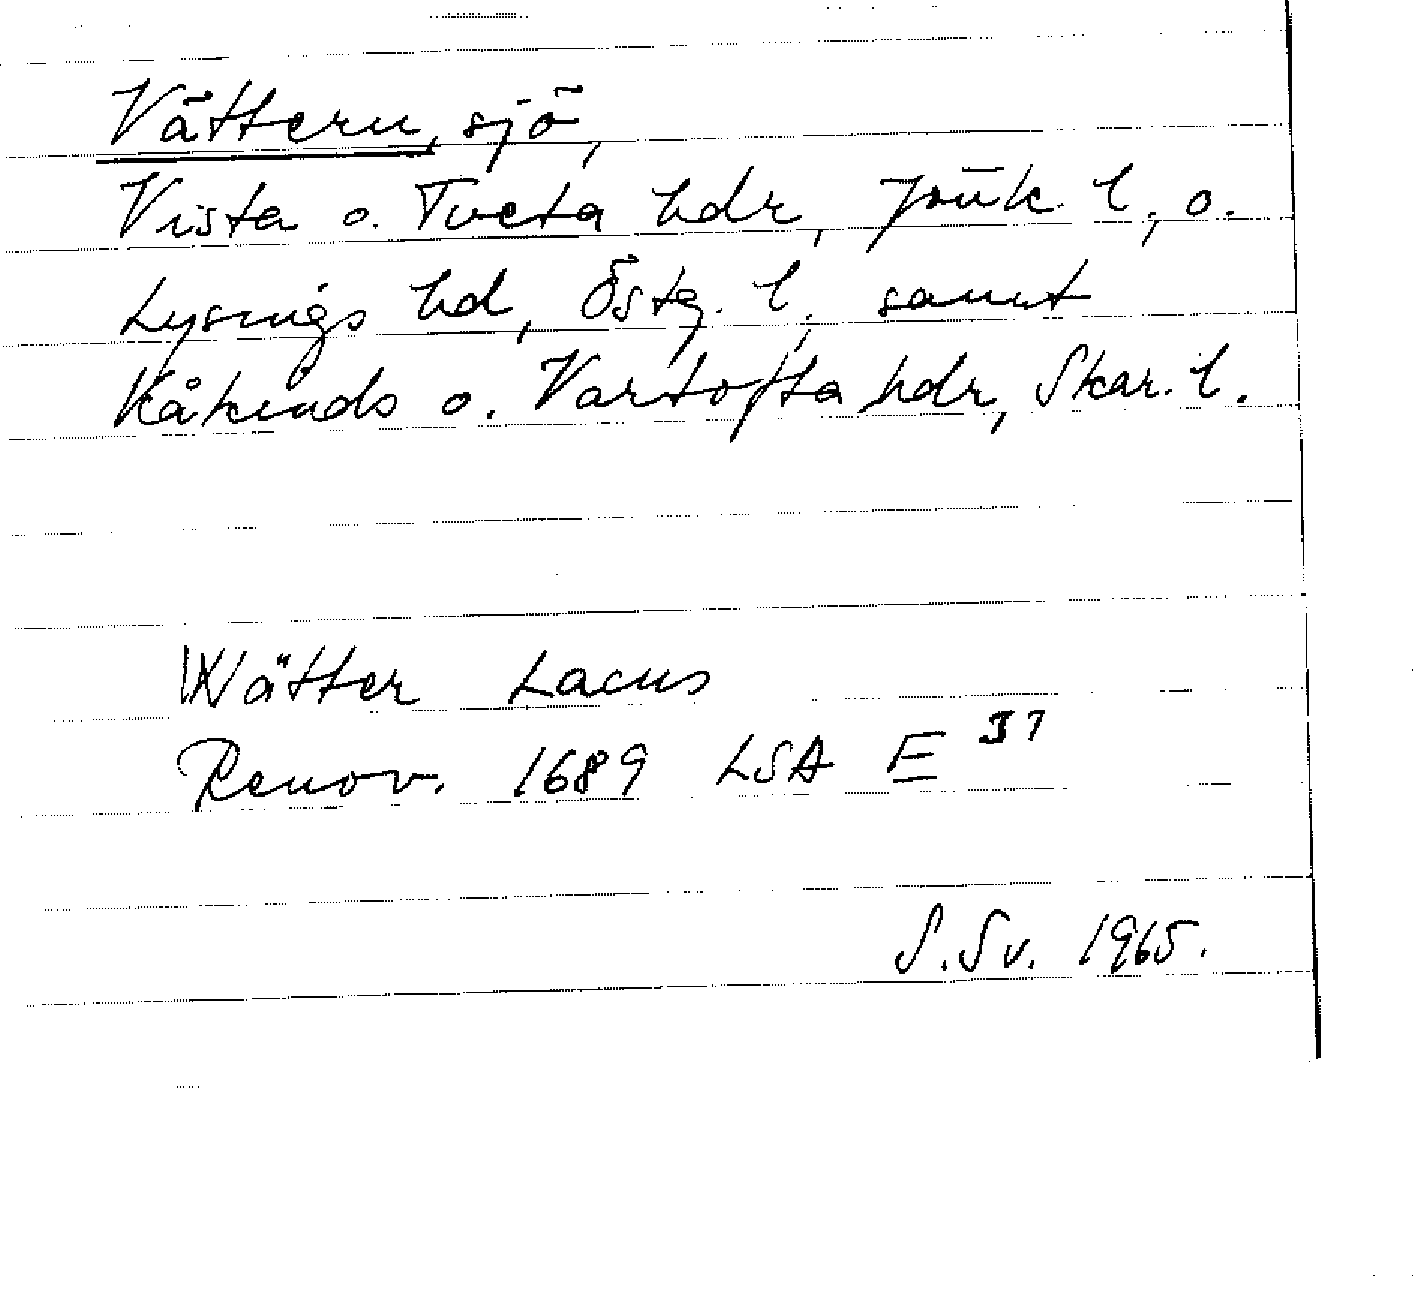 Vättern, sjö,
Vista o. Tveta hdr, Jönk. l., o.
Lysings hd, Östg. l., samt
Kåkinds o. Vartofta hdr, Skar. l.
Wätter Lacus
Renov. 1689 LSA E 37
S. Sv. 1965.